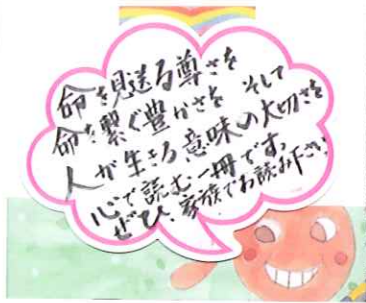 命を見送る尊さを
命を繋ぐ豊かさを そして
人が生きる意味の大切さを
心で読む一冊です。
ぜひ、家族でお読み下さい